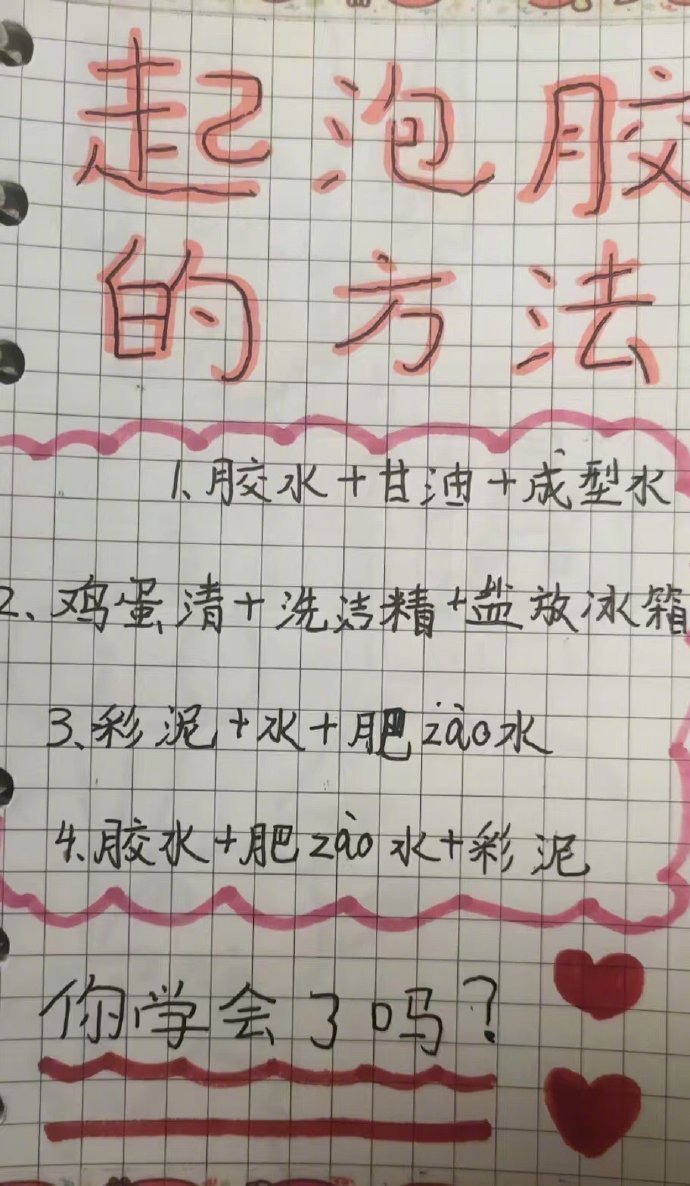 起泡胶
的方法
1、胶水+甘油+成型水
2、鸡蛋清+洗洁精+盐放冰箱
3、彩泥+水+肥zào水
4、胶水+肥zào水+彩泥
你学会了吗?